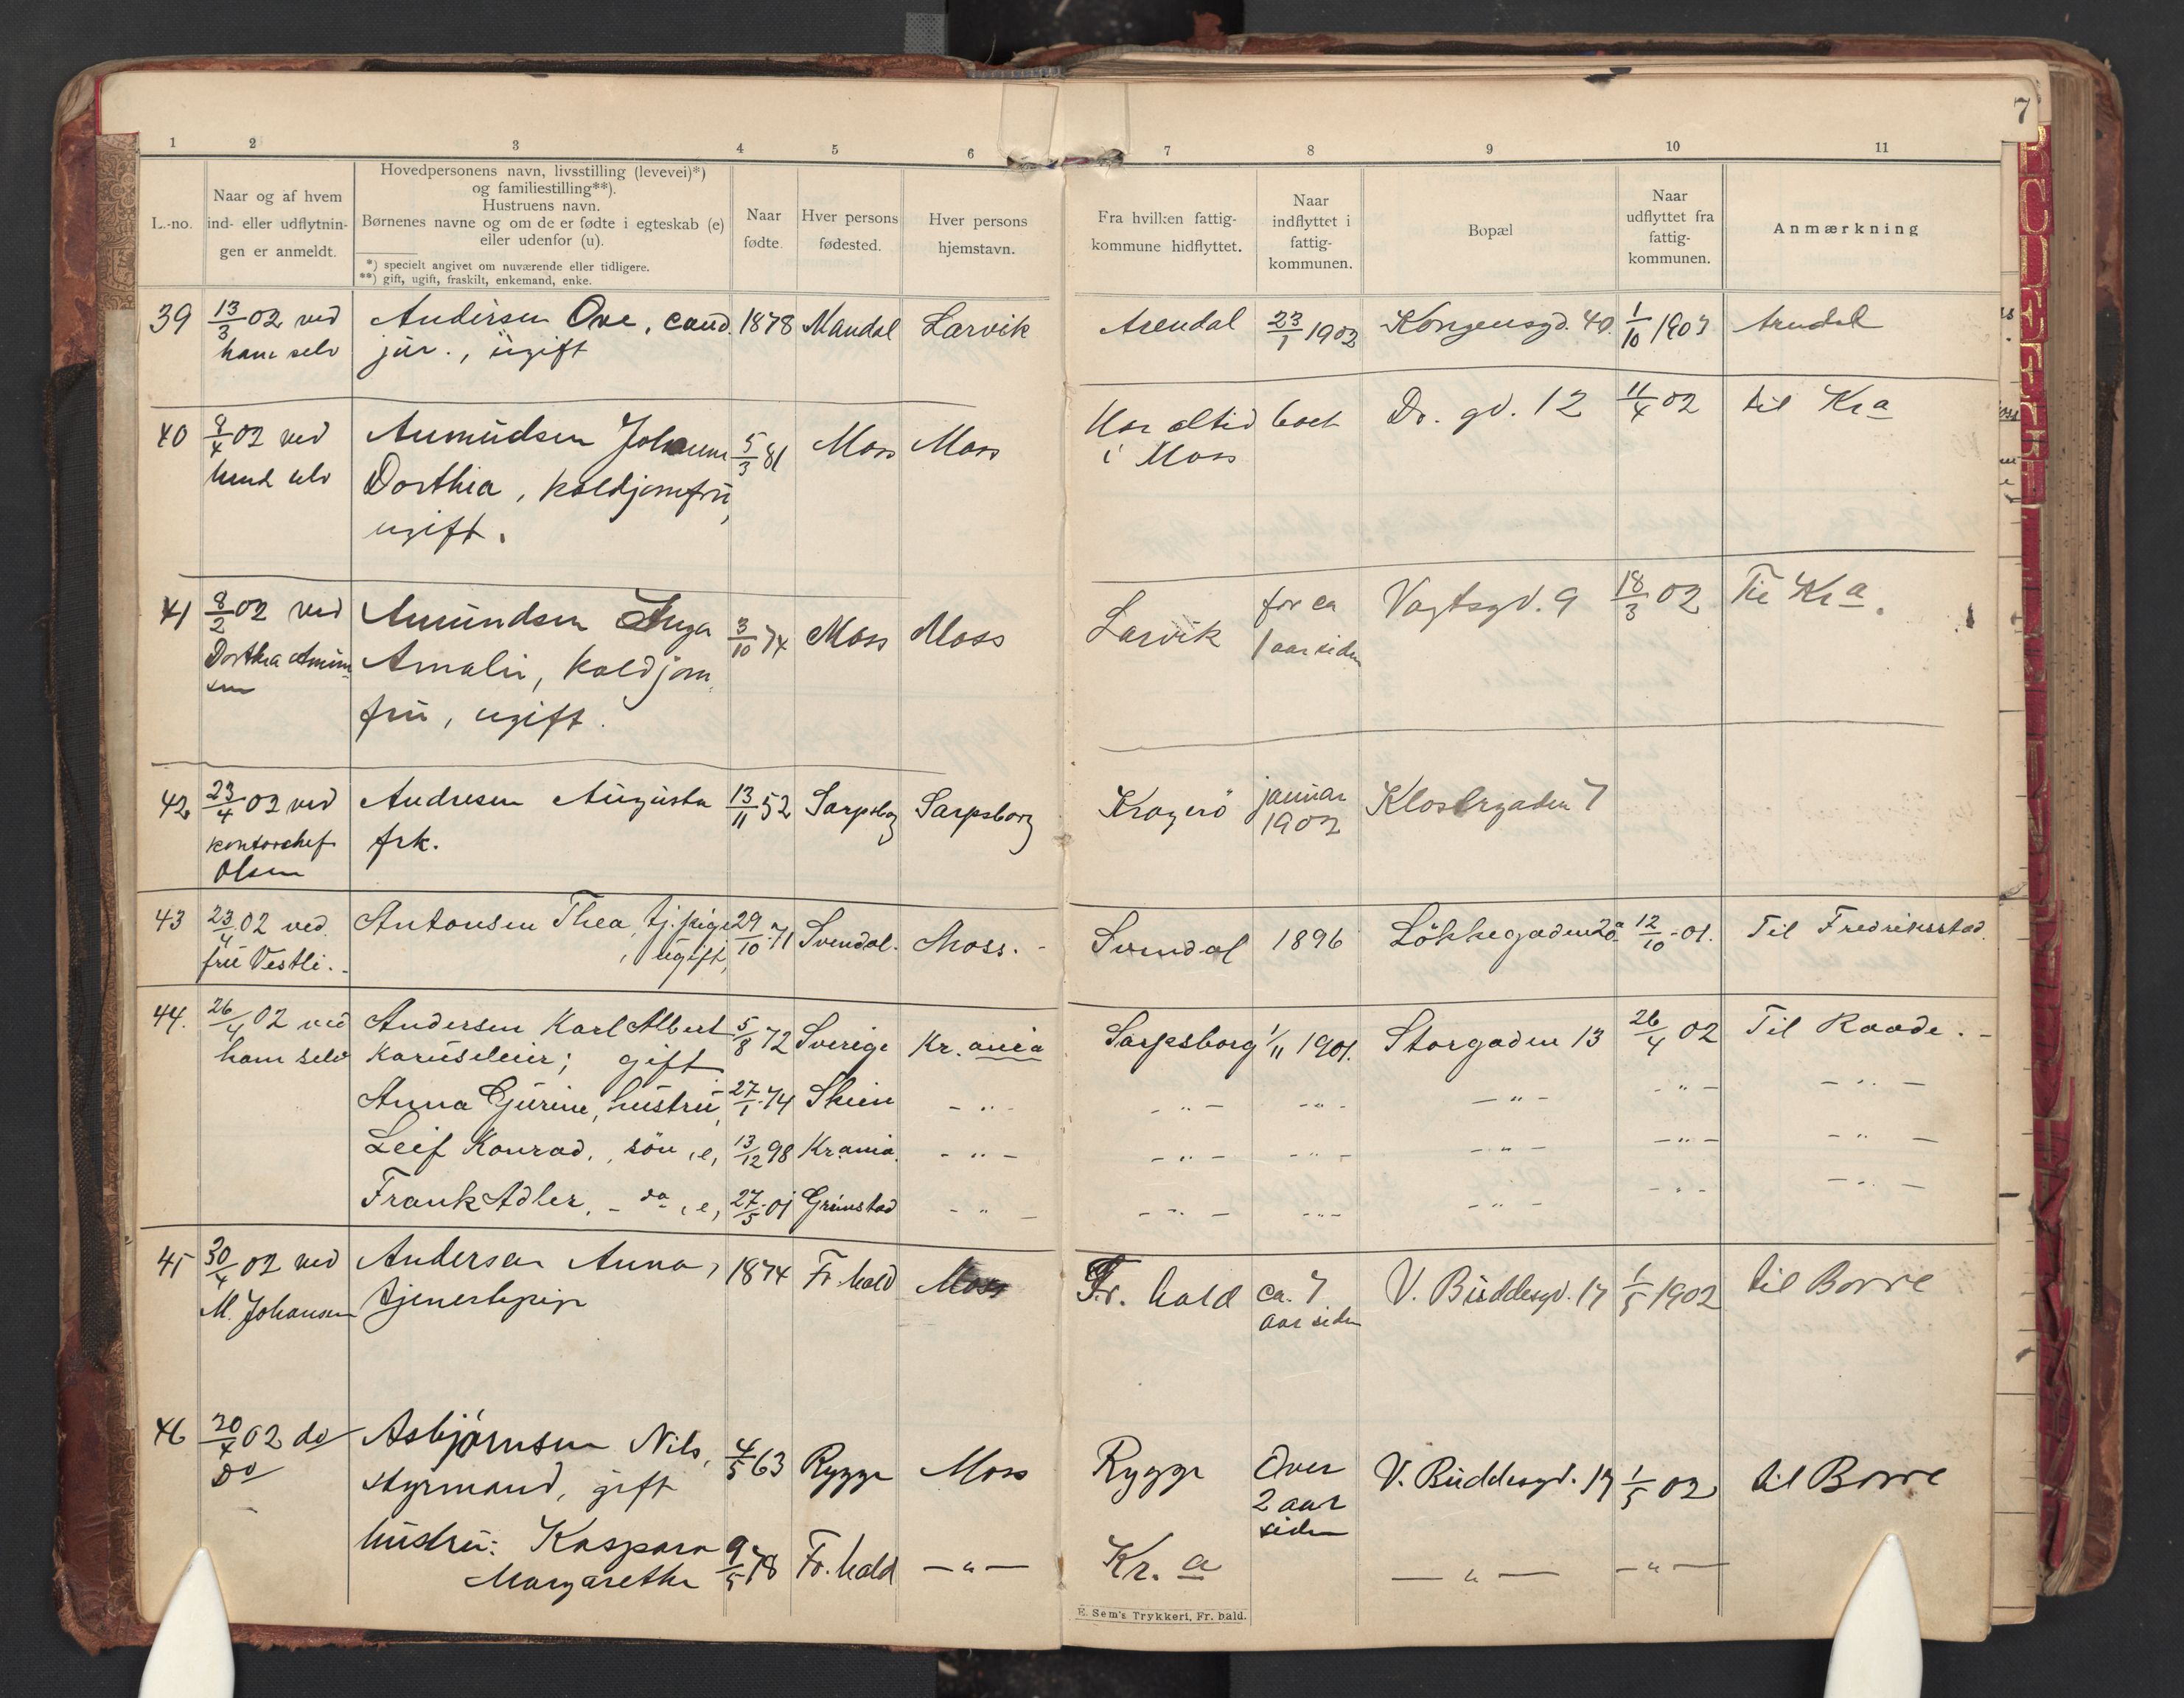 7
1 2 3 4 5 6 7 8 9 10 11
L.-no.
Naar og af hvem
ind- eller udflytnin-
gen er anmeldt.
Hovedpersonens navn, livsstilling (levevei)*)
og familiestilling**).
Hustruens navn.
Børnenes navne og om de er fødte i egteskab (e)
eller udenfor (u).
*) specielt angivet om nuværende eller tidligere.
**) gift, ugift, fraskilt, enkemand, enke.
Naar
fødte.
Hver persons
fødested.
Hver persons
hjemstavn.
Fra hvilken fattig-
kommune hidflyttet.
Naar
indflyttet i
fattig-
kommunen.
Bopæl
Naar
udflyttet fra
fattig-
kommunen.
Anmærkning
39 13/3 02 ved Andersen Ove, cand. 1878 Mandal Larvik Arendal 23/1 1902 Kongensgd. 40. 1/10 1903 Arendal
ham selv jur., ugift
40 8/4 02 ved Aumudsen Johanne 5/3 81 Moss Moss Har altid boet Dr. gd. 12 11/4 02 til Kra
hende selv Dorthea, koldjomfru, i Moss
ugift.
41 8/2 02 ved Amundsen Inga 3/10 74 Moss Moss Larvik for ca Vogtsgd. 9 18/3 02 Til Kra.
Dorthea Amund- Amalie, koldjom- 1 aar siden
sen fru, ugift.
42 23/4 02 ved Andresen Augusta 13/11 52 Sarpsborg Sarpsborg Kragerö januar Klostergaden 7
kontorchef frk. 1902
Olsen
43 23/4 02 ved. Antonsen Thea, tj.pige 29/10 71 Svendal. Moss. - Svendal 1896 Lökkegaden 20a. 12/10 - 01. Til Fredriksstad.
fru Vestli. - , ugift,
44. 26/4 02 ved Andersen Karl Albert 5/8 72 Sverige Kr.ania Sarpsborg 1/11 1901. Storgaden 13 26/4 02 Til Raade. -
ham selv Karuseleier; gift
Anna Gurine, hustru, 27/1 74 Skien - " - - " - - " - - " - - " - - " -
Leif Konrad, sön, e, 13/12 98 Kr.ania. - " - - " - - " - - " - - " - - " -
Frank Adler, - do, e, 27/5 01 Grimstad - " - - " - - " - - " - - " - - " -
45 30/4 02 ved Andersen Anna, 1874 Fr. hald Moss Fr. hald ca. 7 V. Buddesgd. 17 1/5 1902 til Borre
M. Johansen tjenestepige aar siden
46 30/4 02 do Asbjørnsen Nils, 4/5 63 Rygge Moss Rygge Over V. Buddesgd. 17 1/5 02 til Borre
Do styrmand, gift 2 aar
siden
hustru: Kaspara 9/5 78 Fr. hald - " - Kr. a - " - - " -
Margarethe
E. Sem's Trykkeri, Fr. hald.